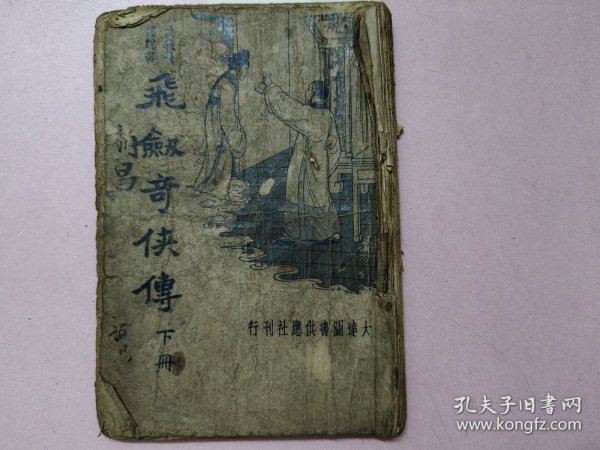 飛劍奇俠傳
下冊
大達圖書供應社刊行
孔夫子旧书网
www.kongfz.com